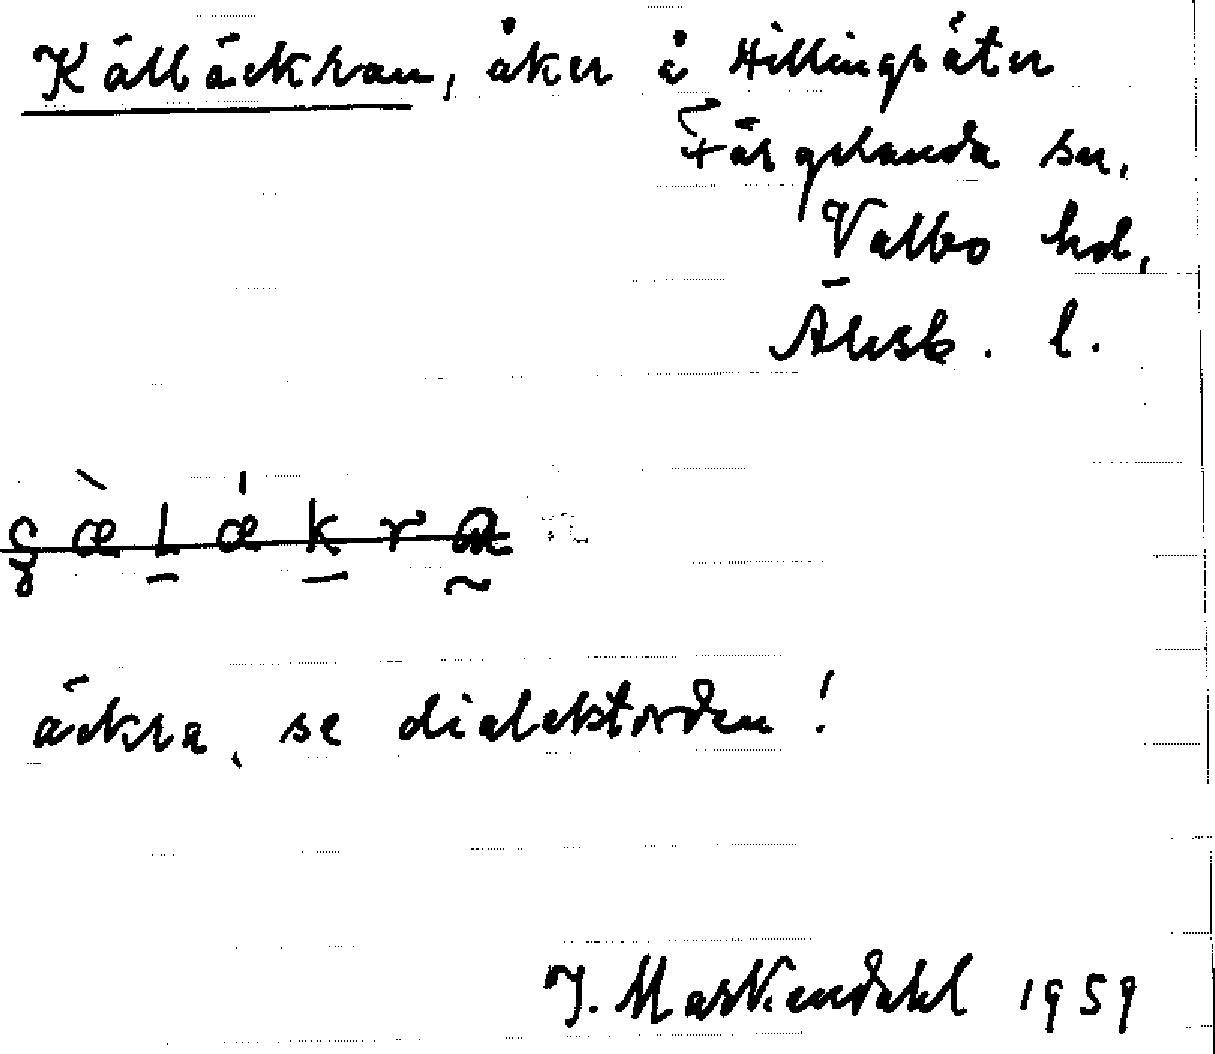 Källäckran, åker å Hillingsäter
Färgelanda sn,
Valbo hd,
Älvsb. l.
äckra, se dialektorden!
J. Markendahl 1959